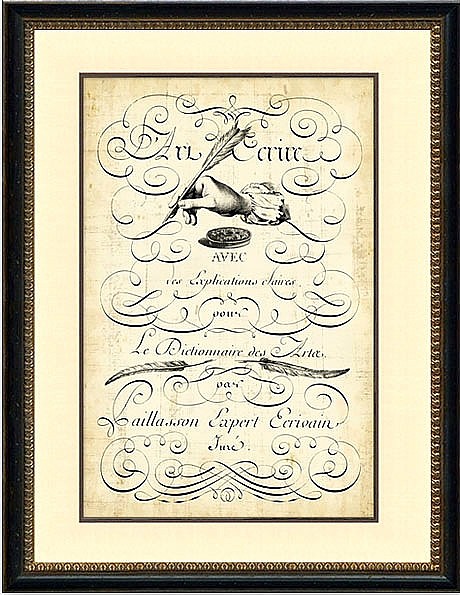 L'Art Ecrire
AVEC
des Explications claires
pour
Le Dictionnaire des Arts.
par
Paillasson Expert Ecrivain
Juré.